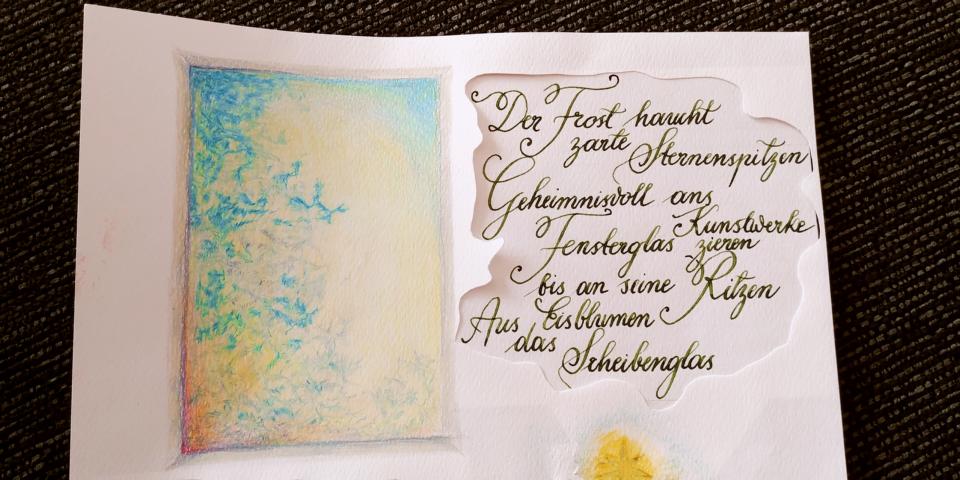 Der Frost haucht
zarte Sternenspitzen
Geheimnisvoll ans
Fensterglas Kunstwerke
zieren
bis an seine Ritzen
Aus Eisblumen
das Scheibenglas